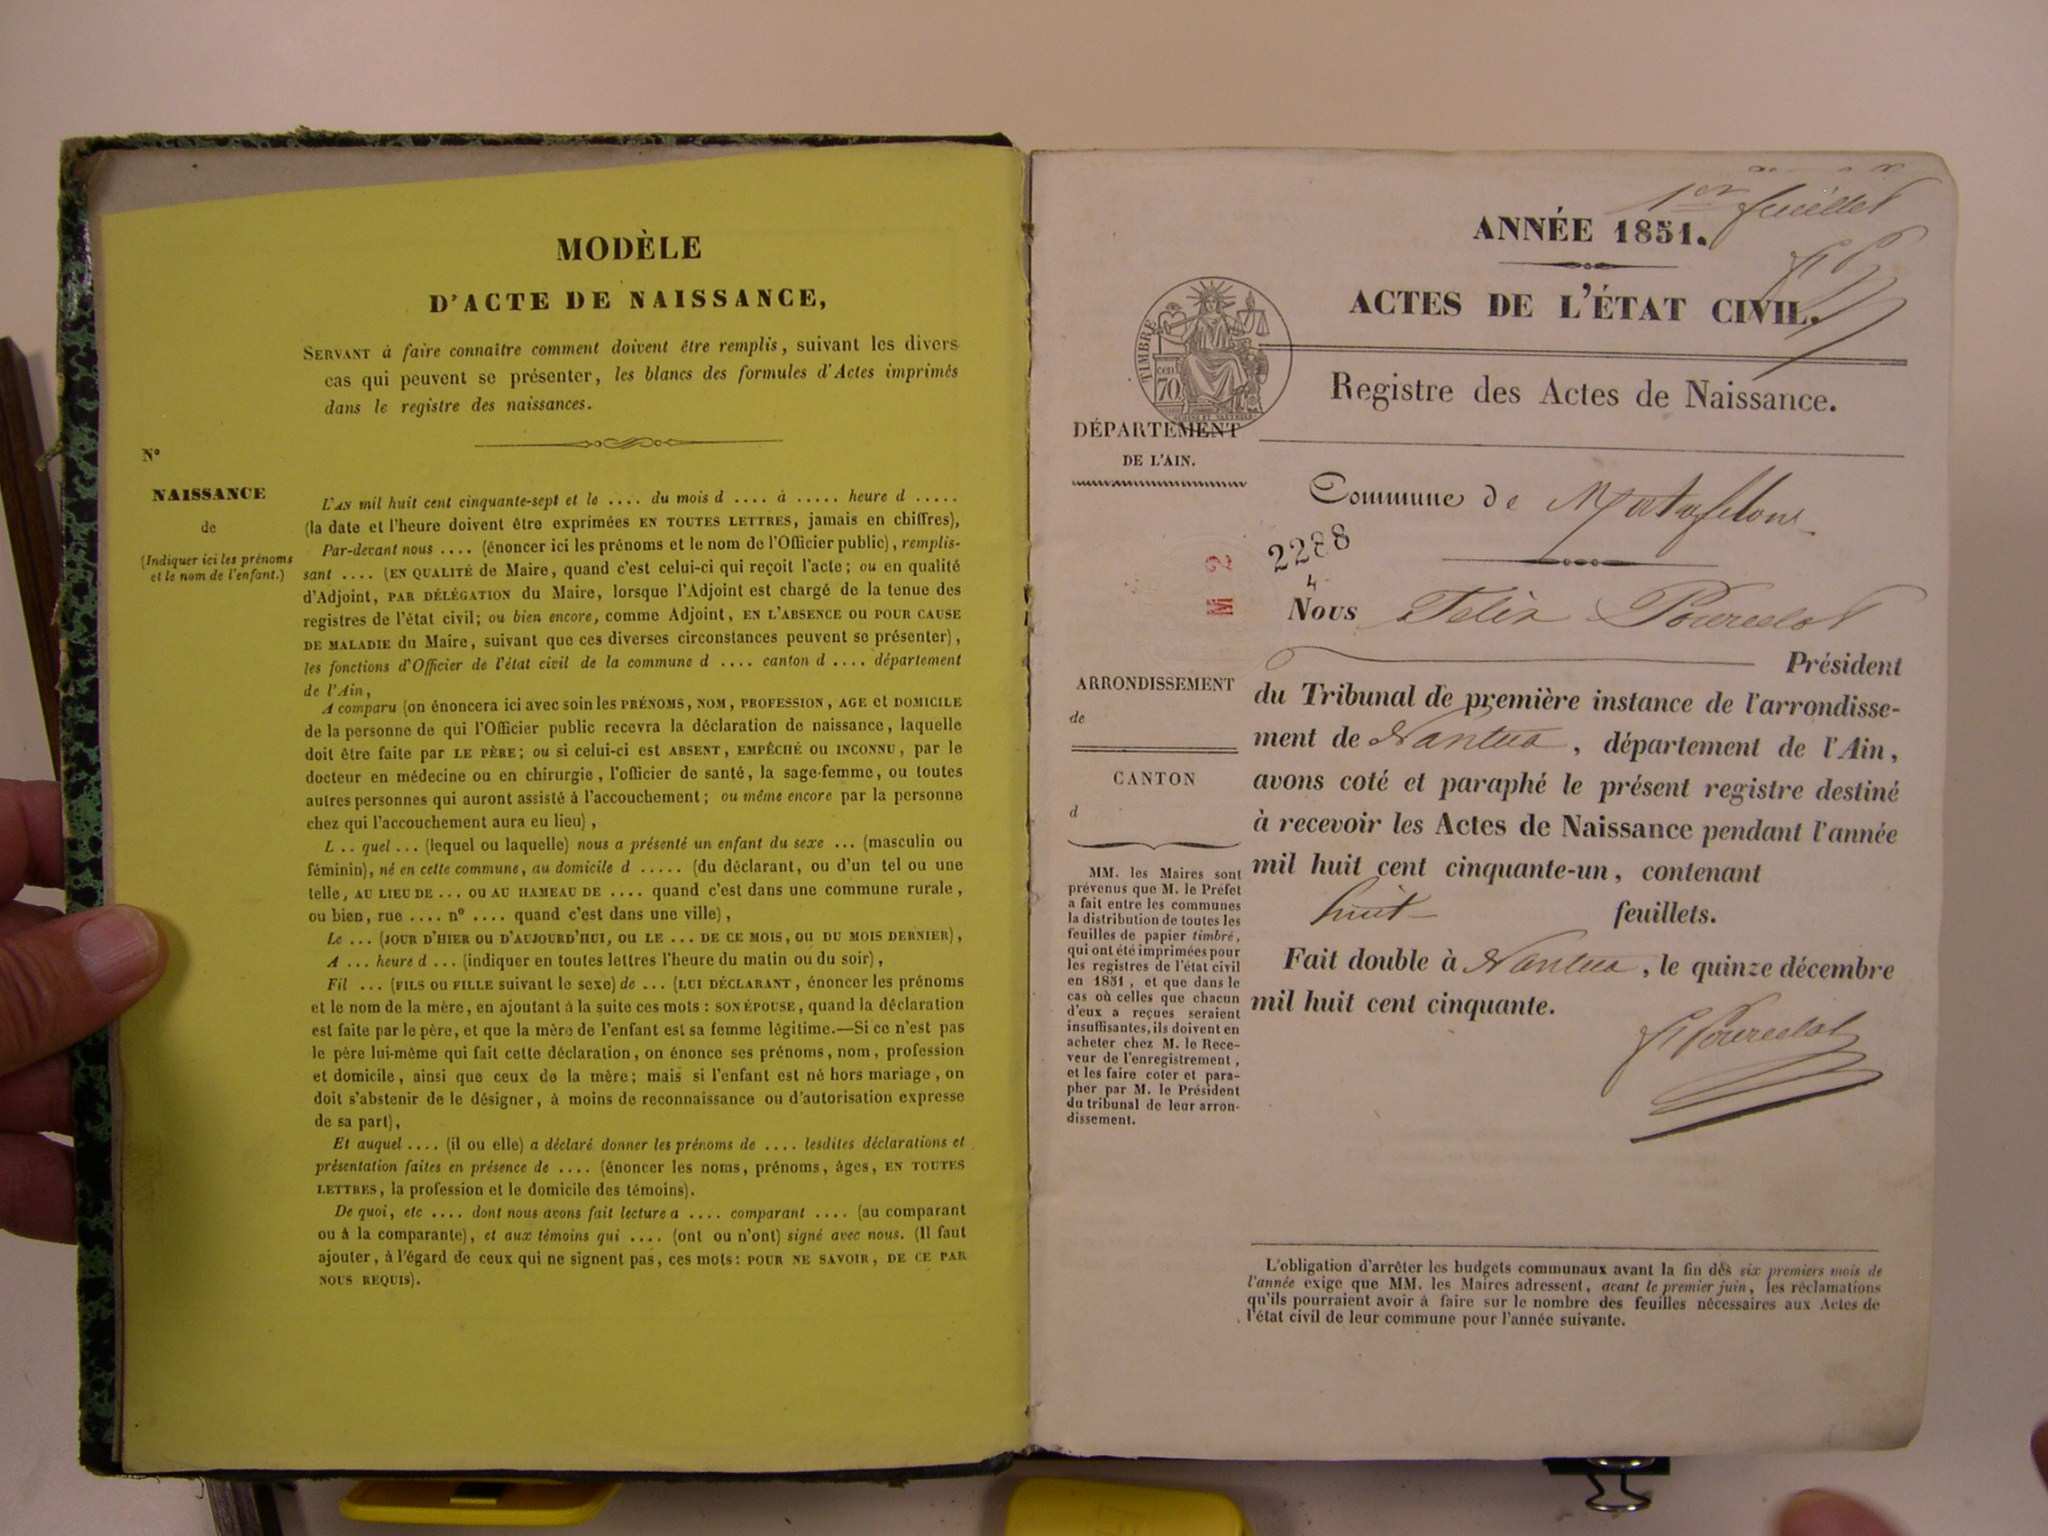 MODÈLE
D'ACTE DE NAISSANCE,
SERVANT à faire connaître comment doivent être remplis, suivant les divers
cas qui peuvent se présenter, les blancs des formules d'Actes imprimés
dans le registre des naissances.
N°
NAISSANCE
de
(Indiquer ici les prénoms
et le nom de l'enfant.)
L'AN mil huit cent cinquante-sept et le .... du mois d .... à ..... heure d .....
(la date et l'heure doivent être exprimées EN TOUTES LETTRES, jamais en chiffres),
Par-devant nous .... (énoncer ici les prénoms et le nom de l'Officier public), remplis-
sant .... (EN QUALITÉ de Maire, quand c'est celui-ci qui reçoit l'acte; ou en qualité
d'Adjoint, PAR DÉLÉGATION du Maire, lorsque l'Adjoint est chargé de la tenue des
registres de l'état civil; ou bien encore, comme Adjoint, EN L'ABSENCE OU POUR CAUSE
DE MALADIE du Maire, suivant que ces diverses circonstances peuvent se présenter),
les fonctions d'Officier de l'état civil de la commune d .... canton d .... département
de l'Ain,
A comparu (on énoncera ici avec soin les PRÉNOMS, NOM, PROFESSION, AGE et DOMICILE
de la personne de qui l'Officier public recevra la déclaration de naissance, laquelle
doit être faite par LE PÈRE; ou si celui-ci est ABSENT, EMPÊCHÉ OU INCONNU, par le
docteur en médecine ou en chirurgie, l'officier de santé, la sage-femme, ou toutes
autres personnes qui auront assisté à l'accouchement; ou même encore par la personne
chez qui l'accouchement aura eu lieu),
L .. quel ... (lequel ou laquelle) nous a présenté un enfant du sexe ... (masculin ou
féminin), né en cette commune, au domicile d ..... (du déclarant, ou d'un tel ou une
telle, AU LIEU DE ... OU AU HAMEAU DE .... quand c'est dans une commune rurale,
ou bien, rue .... n° .... quand c'est dans une ville),
Le ... (JOUR D'HIER OU D'AUJOURD'HUI, OU LE ... DE CE MOIS, OU DU MOIS DERNIER),
A ... heure d ... (indiquer en toutes lettres l'heure du matin ou du soir),
Fil ... (FILS OU FILLE suivant le sexe) de ... (LUI DÉCLARANT, énoncer les prénoms
et le nom de la mère, en ajoutant à la suite ces mots: SON ÉPOUSE, quand la déclaration
est faite par le père, et que la mère de l'enfant est sa femme légitime.—Si ce n'est pas
le père lui-même qui fait cette déclaration, on énonce ses prénoms, nom, profession
et domicile, ainsi que ceux de la mère; mais si l'enfant est né hors mariage, on
doit s'abstenir de le désigner, à moins de reconnaissance ou d'autorisation expresse
de sa part),
Et auquel .... (il ou elle) a déclaré donner les prénoms de .... lesdites déclarations et
présentation faites en présence de .... (énoncer les noms, prénoms, âges, EN TOUTES
LETTRES, la profession et le domicile des témoins).
De quoi, etc .... dont nous avons fait lecture a .... comparant .... (au comparant
ou à la comparante), et aux témoins qui .... (ont ou n'ont) signé avec nous. (Il faut
ajouter, à l'égard de ceux qui ne signent pas, ces mots: POUR NE SAVOIR, DE CE PAR
NOUS REQUIS).
1er feuillet
ANNÉE 1851.
ACTES DE L'ÉTAT CIVIL.
TIMBRE
cent
70
Registre des Actes de Naissance.
DÉPARTEMENT
DE L'AIN.
Commune de Matafelons
2288
4
M 2
Nous Félix Pourcelot
Président
du Tribunal de première instance de l'arrondisse-
ment de Nantua, département de l'Ain,
avons coté et paraphé le présent registre destiné
à recevoir les Actes de Naissance pendant l'année
mil huit cent cinquante-un, contenant
huit feuillets.
Fait double à Nantua, le quinze décembre
mil huit cent cinquante.
Pourcelot
ARRONDISSEMENT
de
CANTON
d
MM. les Maires sont
prévenus que M. le Préfet
a fait entre les communes
la distribution de toutes les
feuilles de papier timbré,
qui ont été imprimées pour
les registres de l'état civil
en 1851, et que dans le
cas où celles que chacun
d'eux a reçues seraient
insuffisantes, ils doivent en
acheter chez M. le Rece-
veur de l'enregistrement,
et les faire coter et para-
pher par M. le Président
du tribunal de leur arron-
dissement.
L'obligation d'arrêter les budgets communaux avant la fin dès six premiers mois de
l'année exige que MM. les Maires adressent, avant le premier juin, les réclamations
qu'ils pourraient avoir à faire sur le nombre des feuilles nécessaires aux Actes de
l'état civil de leur commune pour l'année suivante.